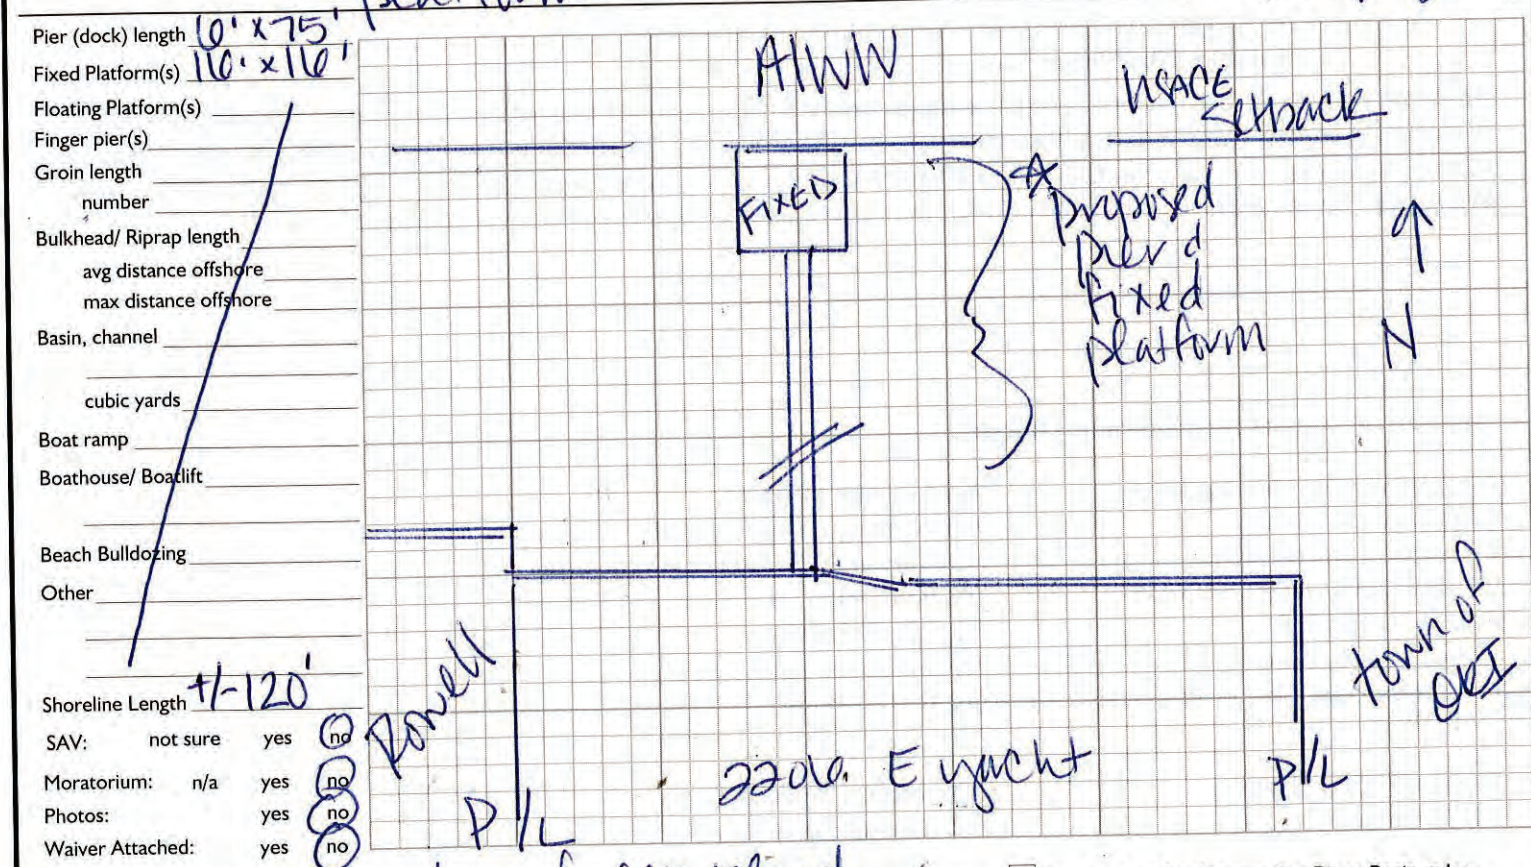 platform
Pier (dock) length 6' x 75'
Fixed Platform(s) 16' x 16'
Floating Platform(s)
Finger pier(s)
Groin length
number
Bulkhead/ Riprap length
avg distance offshore
max distance offshore
Basin, channel
cubic yards
Boat ramp
Boathouse/ Boatlift
Beach Bulldozing
Other
Shoreline Length +/-120'
SAV: not sure yes no
Moratorium: n/a yes no
Photos: yes no
Waiver Attached: yes no
AIWW
USACE
setback
FIXED
proposed
pier &
fixed
platform
N
Rowell
P/L
2206 E yacht
P/L
town of
OKI